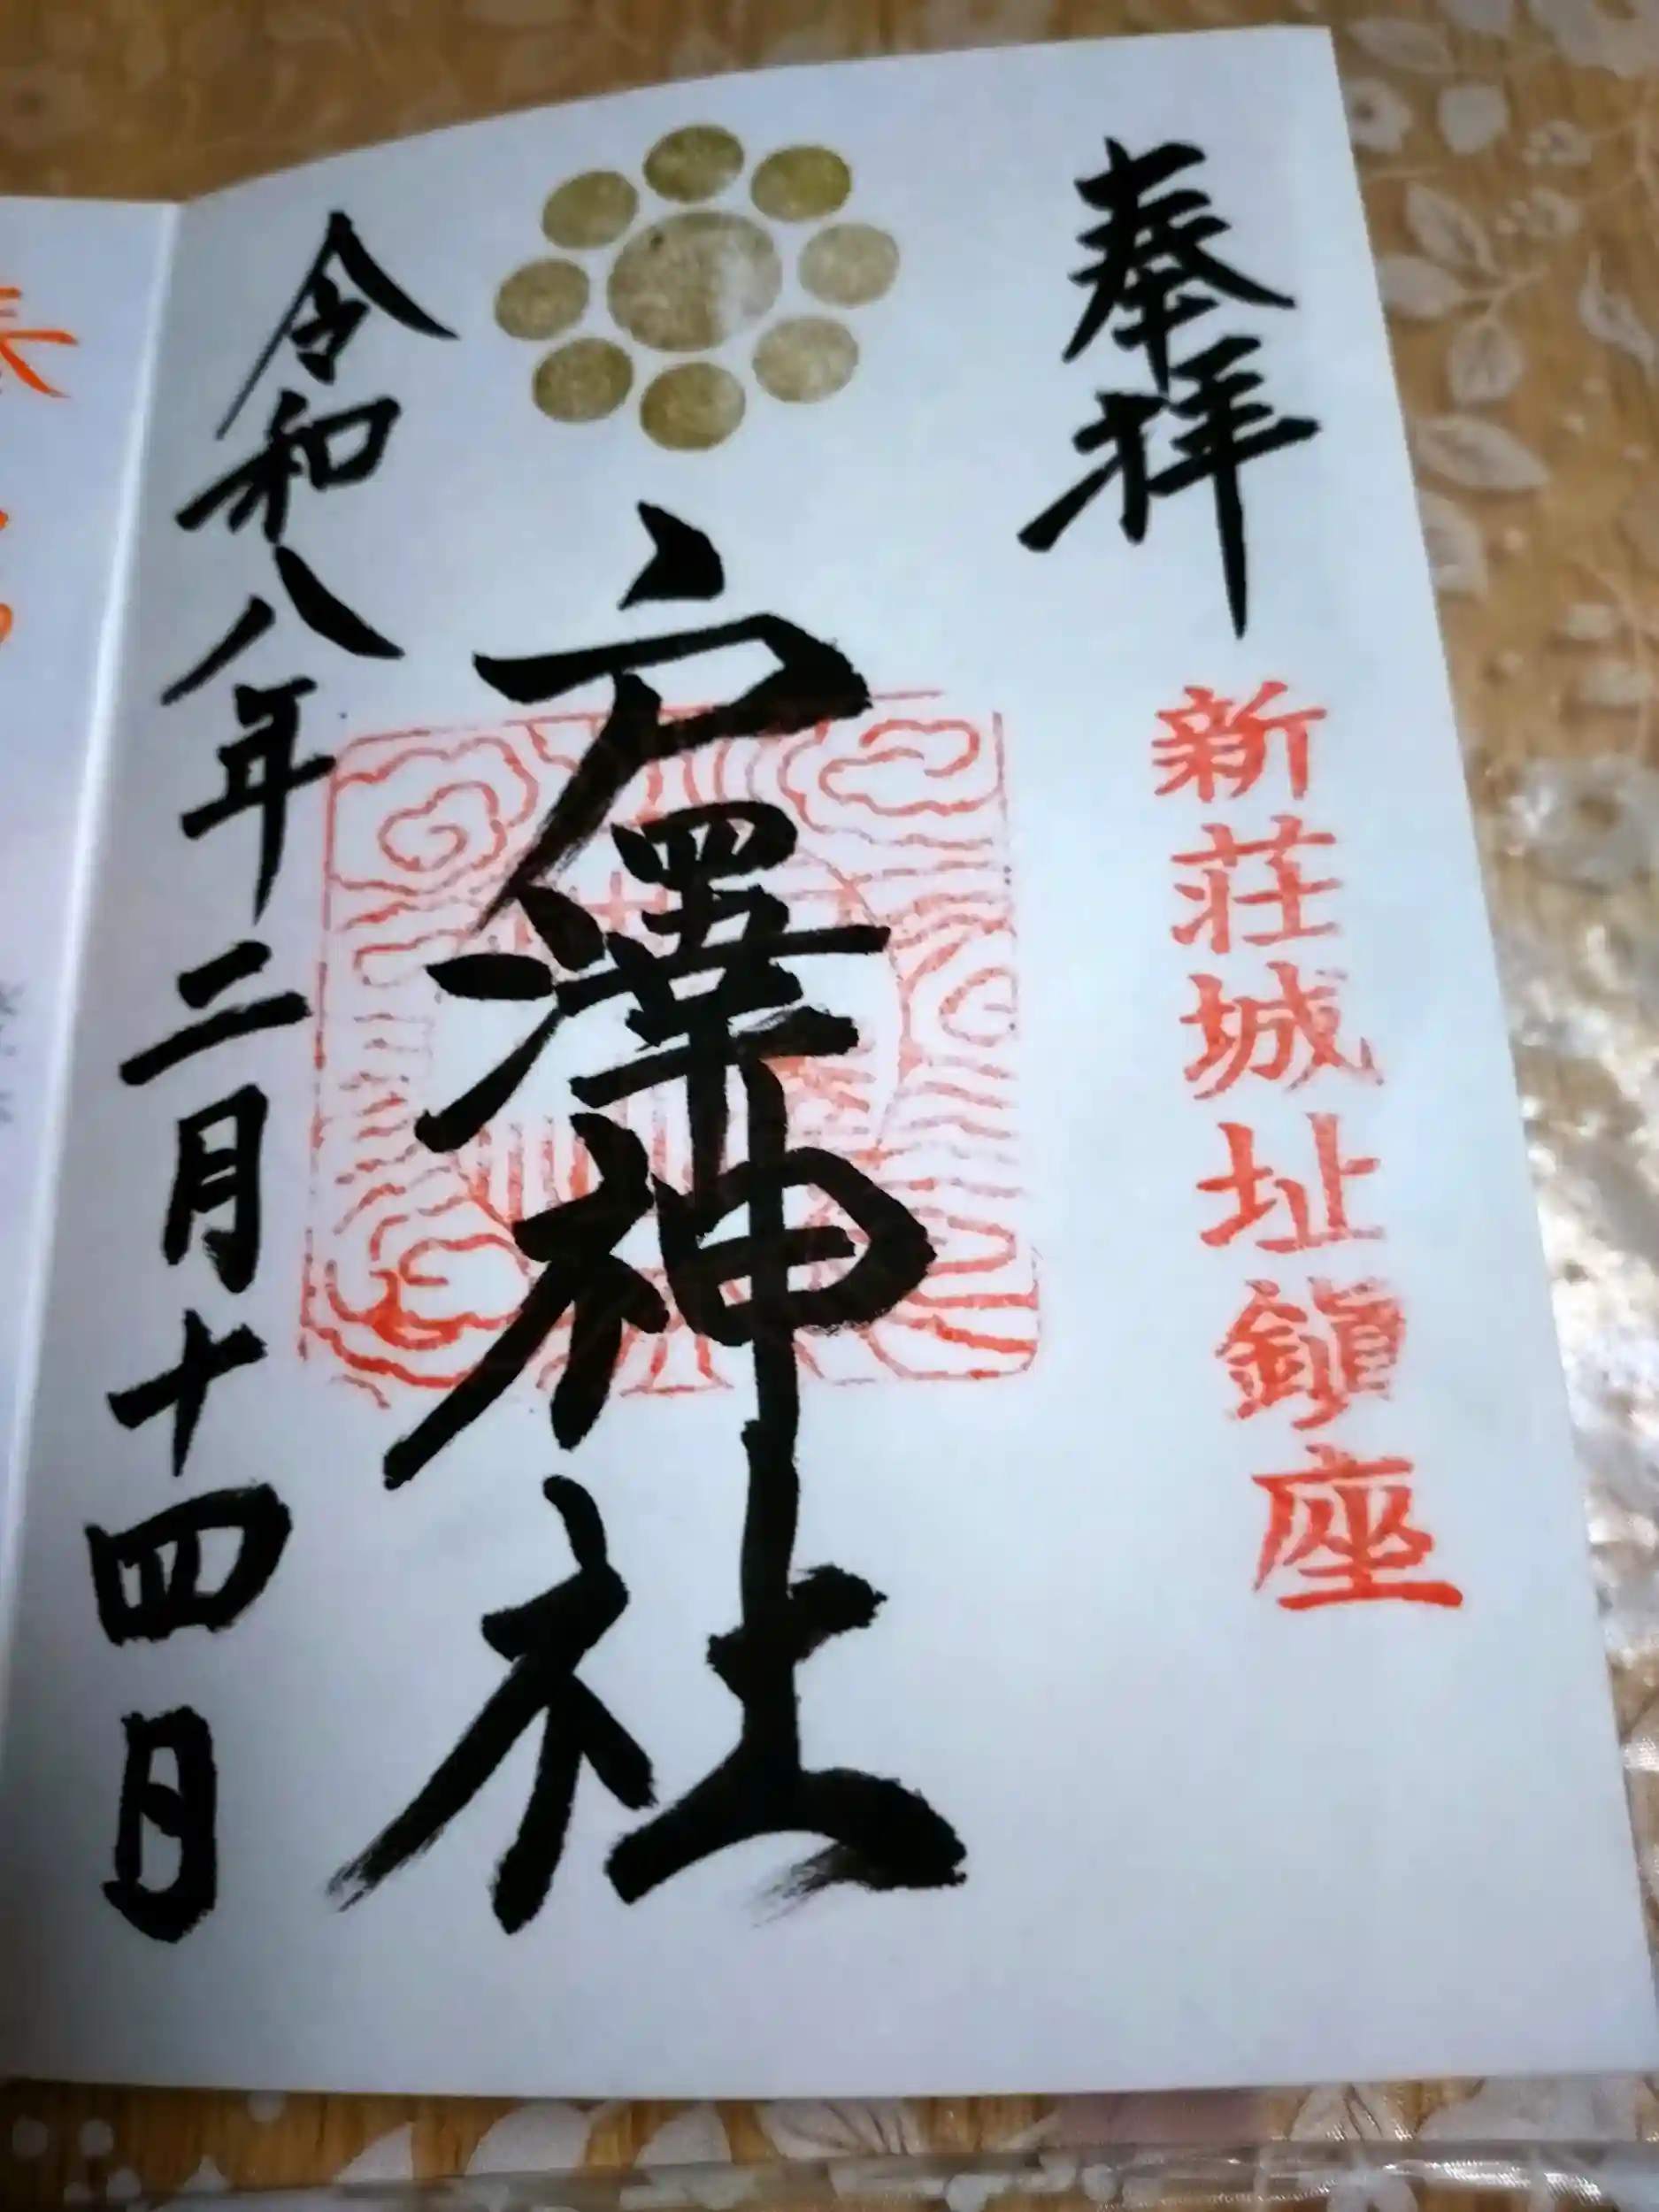 奉拝
新荘城址鎭座
戸澤神社
令和八年二月十四日